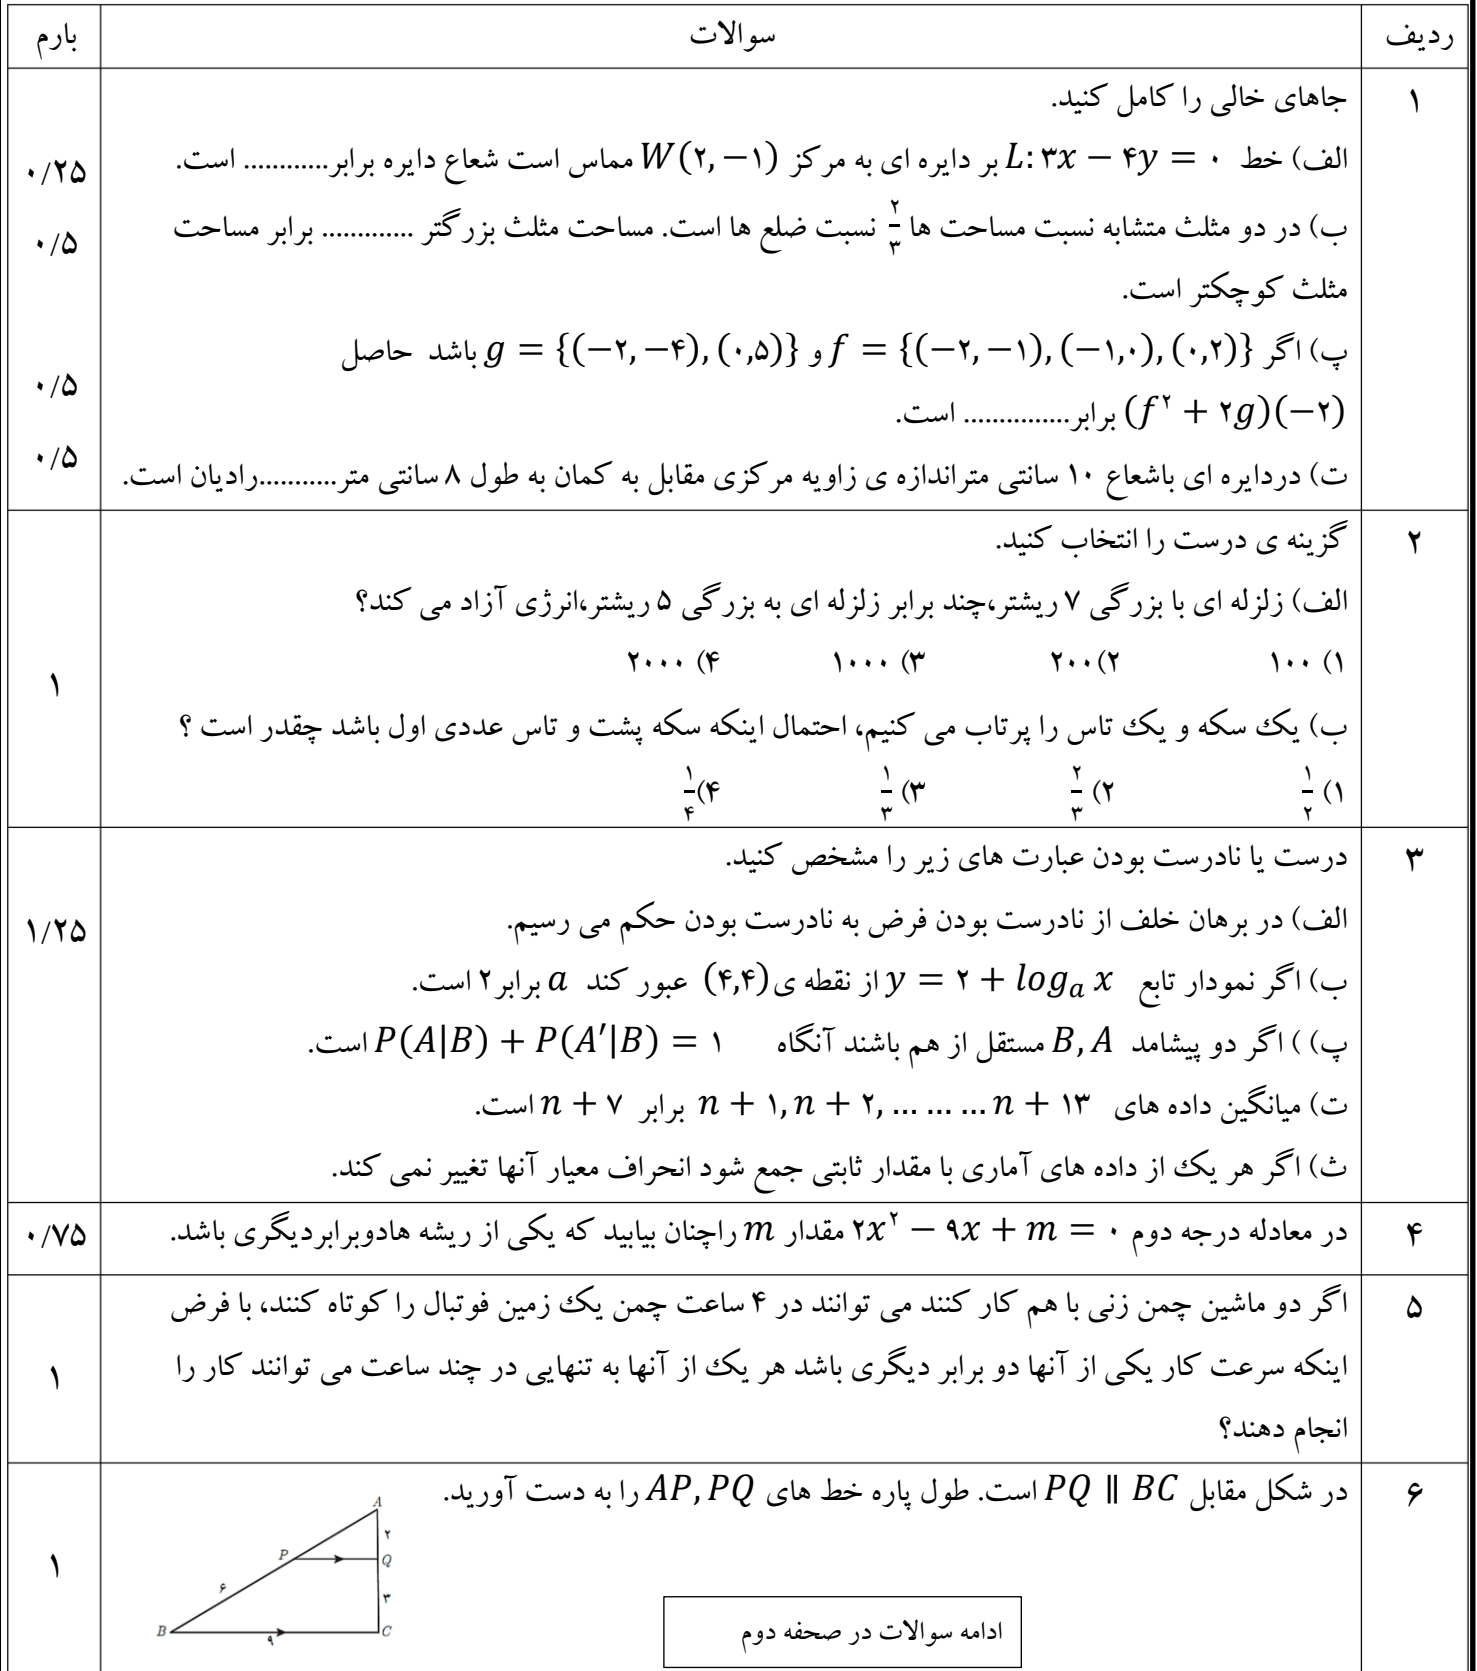 ردیف سوالات بارم
۱ جاهای خالی را کامل کنید.
الف) خط L: ۳x − ۴y = ۰ بر دایره ای به مرکز W(۲, −۱) مماس است شعاع دایره برابر............ است. ۰/۲۵
ب) در دو مثلث متشابه نسبت مساحت ها ۲/۳ نسبت ضلع ها است. مساحت مثلث بزرگتر ............. برابر مساحت ۰/۵
مثلث کوچکتر است.
پ) اگر f = {(−۲, −۱), (−۱,۰), (۰,۲)} و g = {(−۲, −۴), (۰,۵)} باشد حاصل
(f² + ۲g)(−۲) برابر............... است. ۰/۵
ت) دردایره ای باشعاع ۱۰ سانتی متراندازه ی زاویه مرکزی مقابل به کمان به طول ۸ سانتی متر...........رادیان است. ۰/۵
۲ گزینه ی درست را انتخاب کنید.
الف) زلزله ای با بزرگی ۷ ریشتر،چند برابر زلزله ای به بزرگی ۵ ریشتر،انرژی آزاد می کند؟
۱) ۱۰۰ ۲)۲۰۰ ۳) ۱۰۰۰ ۴) ۲۰۰۰
۱
ب) یک سکه و یک تاس را پرتاب می کنیم، احتمال اینکه سکه پشت و تاس عددی اول باشد چقدر است ؟
۱) ۱/۲ ۲) ۲/۳ ۳) ۱/۳ ۴)۱/۴
۳ درست یا نادرست بودن عبارت های زیر را مشخص کنید.
الف) در برهان خلف از نادرست بودن فرض به نادرست بودن حکم می رسیم. ۱/۲۵
ب) اگر نمودار تابع y = ۲ + logₐ x از نقطه ی (۴,۴) عبور کند a برابر ۲ است.
پ) ) اگر دو پیشامد B, A مستقل از هم باشند آنگاه P(A|B) + P(A′|B) = ۱ است.
ت) میانگین داده های n + ۱, n + ۲, … … … n + ۱۳ برابر n + ۷ است.
ث) اگر هر یک از داده های آماری با مقدار ثابتی جمع شود انحراف معیار آنها تغییر نمی کند.
۴ در معادله درجه دوم ۲x² − ۹x + m = ۰ مقدار m راچنان بیابید که یکی از ریشه هادوبرابردیگری باشد. ۰/۷۵
۵ اگر دو ماشین چمن زنی با هم کار کنند می توانند در ۴ ساعت چمن یک زمین فوتبال را کوتاه کنند، با فرض
اینکه سرعت کار یکی از آنها دو برابر دیگری باشد هر یک از آنها به تنهایی در چند ساعت می توانند کار را ۱
انجام دهند؟
۶ در شکل مقابل PQ ∥ BC است. طول پاره خط های AP, PQ را به دست آورید.
A
۲
P Q
۱
۶ ۳
B C
۹
ادامه سوالات در صحفه دوم